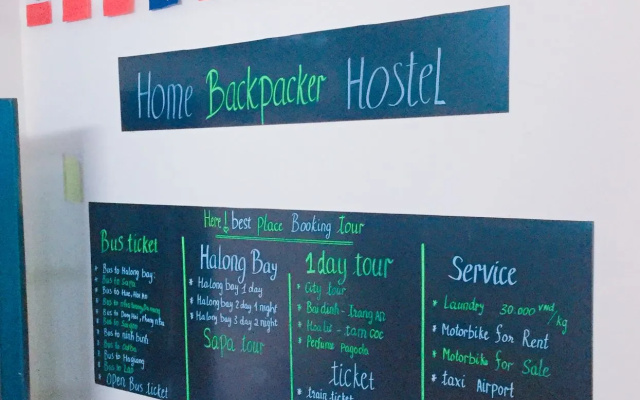 Home Backpacker Hostel
Here! best place Booking Tour
Bus ticket
* Bus to Halong bay:
* Bus to Sapa
* Bus to Hue, Hoi An
* Bus to
* Bus to Dong Hoi, Phong nha
* Bus to
* Bus to ninh binh
* Bus to
* Bus to Hagiang
* Bus to Lao
* Open Bus ticket
Halong Bay
* Halong bay 1 day
* Halong bay 2 day 1 night
* Halong bay 3 day 2 night
Sapa tour
1 day tour
* City tour
* Bai dinh - Trang An
* Hoa lu - tam coc
* Perfume Pagoda
ticket
* train ticket
Service
* Laundry 30.000 vnd/kg
* Motorbike for Rent
* Motorbike for Sale
* taxi Airport